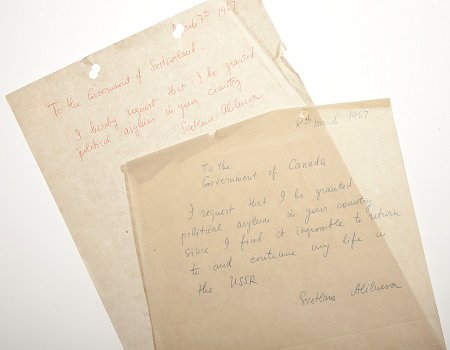 March 7th 1967
To the Government of Switzerland
I hereby request that I be granted
political asylum in your country
Svetlana Alilueva
8th March 1967
To the
Government of Canada
I request that I be granted
political asylum in your country
since I find it impossible to return
to and continue my life in
the USSR
Svetlana Alilueva